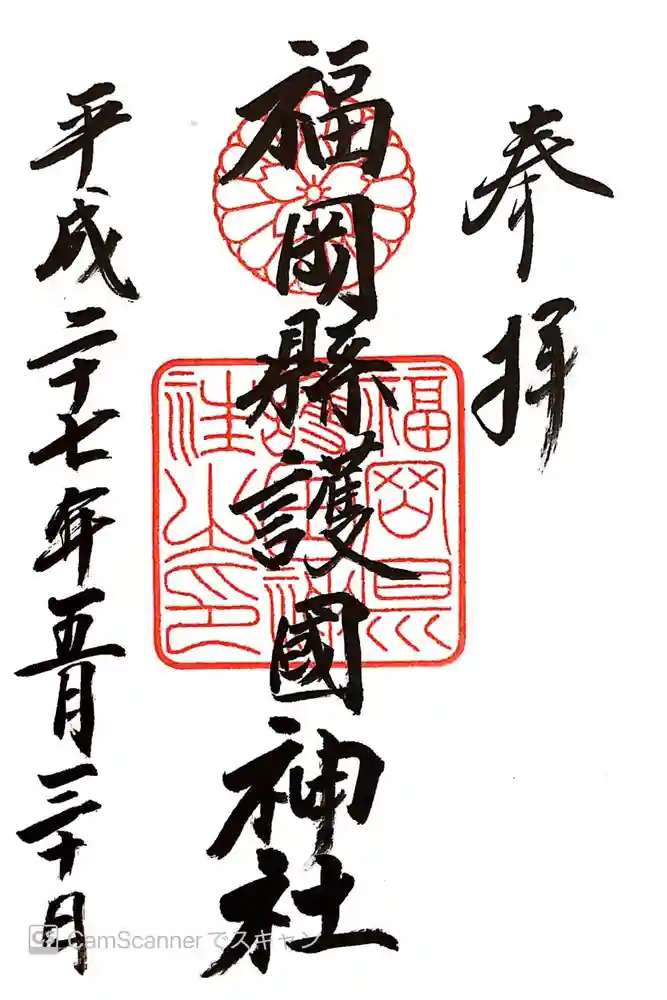 奉拝
福岡縣護國神社
平成二十七年五月三十日
福岡県護国神社之印
CamScannerでスキャン